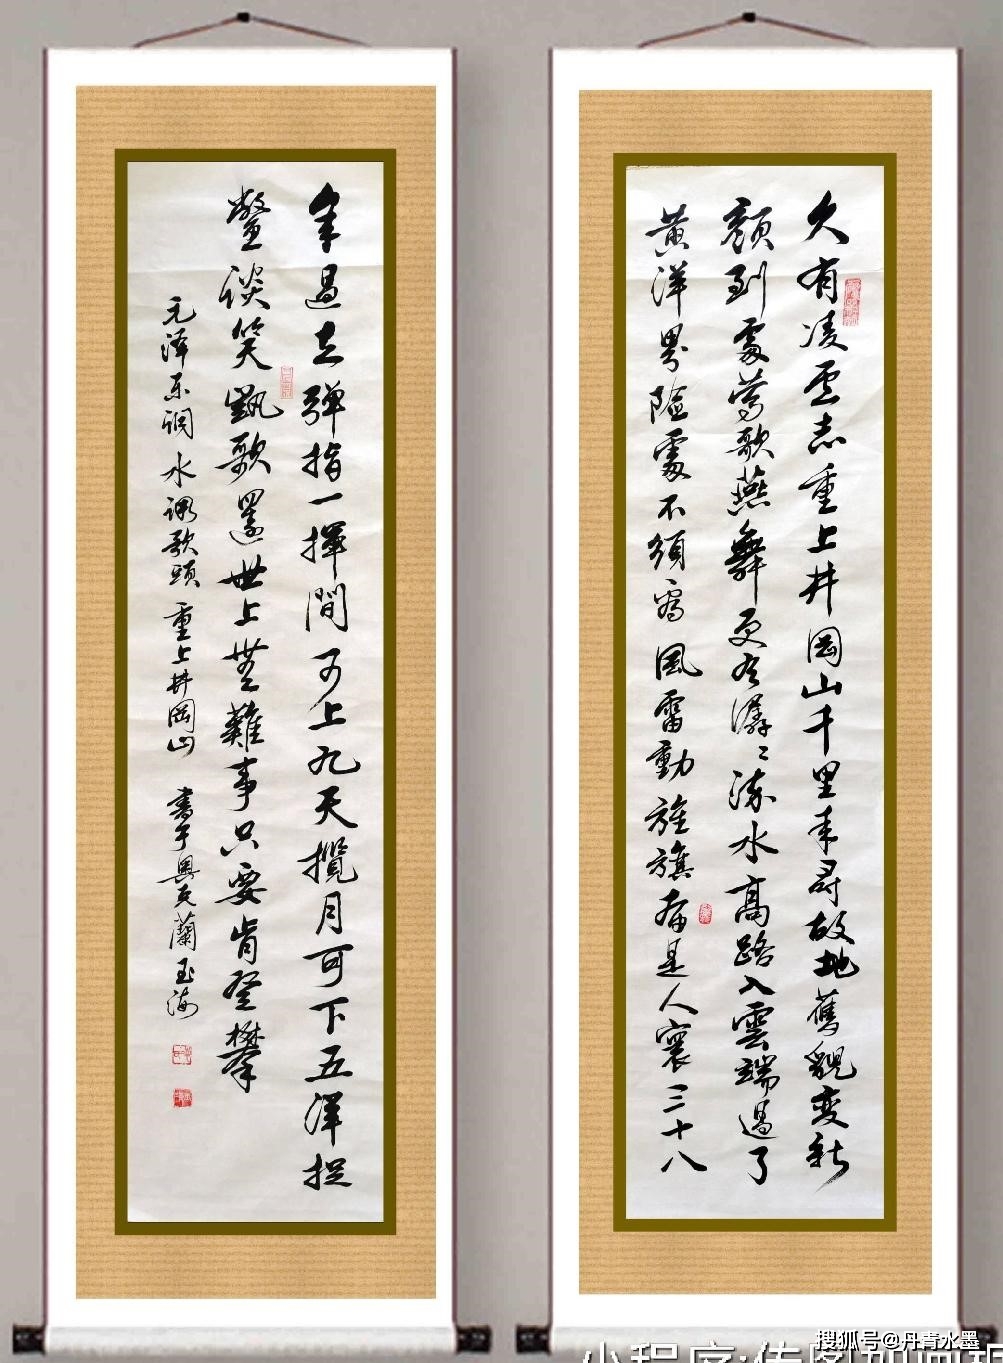 久有凌雲志重上井岡山千里来尋故地舊貌变新
顏到處鶯歌燕舞更有潺潺流水高路入雲端過了
黃洋界險處不須看風雷動旌旗奮是人寰三十八
年過去彈指一揮間可上九天攬月可下五洋捉
鱉談笑凱歌還世上無難事只要肯登攀
毛泽东词 水调歌頭 重上井岡山 書于奥克蘭 玉海
搜狐号@丹青水墨